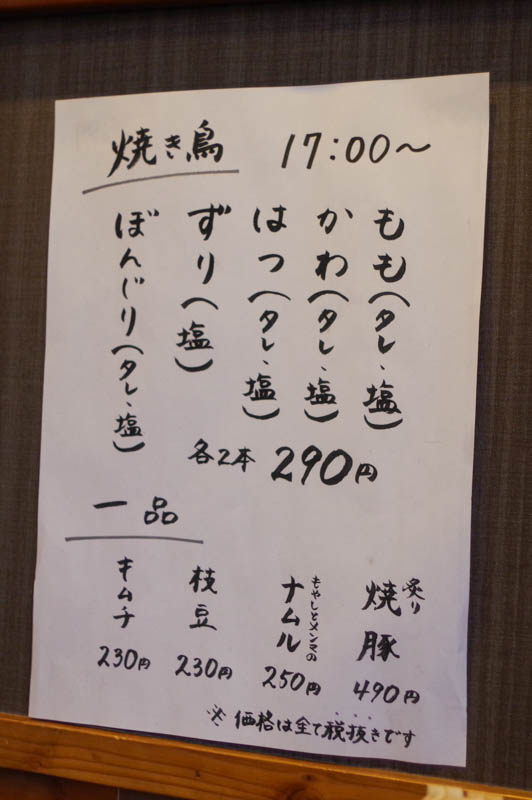 焼き鳥 17:00〜
もも(タレ、塩)
かわ(タレ、塩)
はつ(タレ、塩)
ずり(塩)
ぼんじり(タレ、塩)
各2本 290円
一品
炙り
焼豚
490円
もやしとメンマの
ナムル
250円
枝豆
230円
キムチ
230円
※価格は全て税抜きです